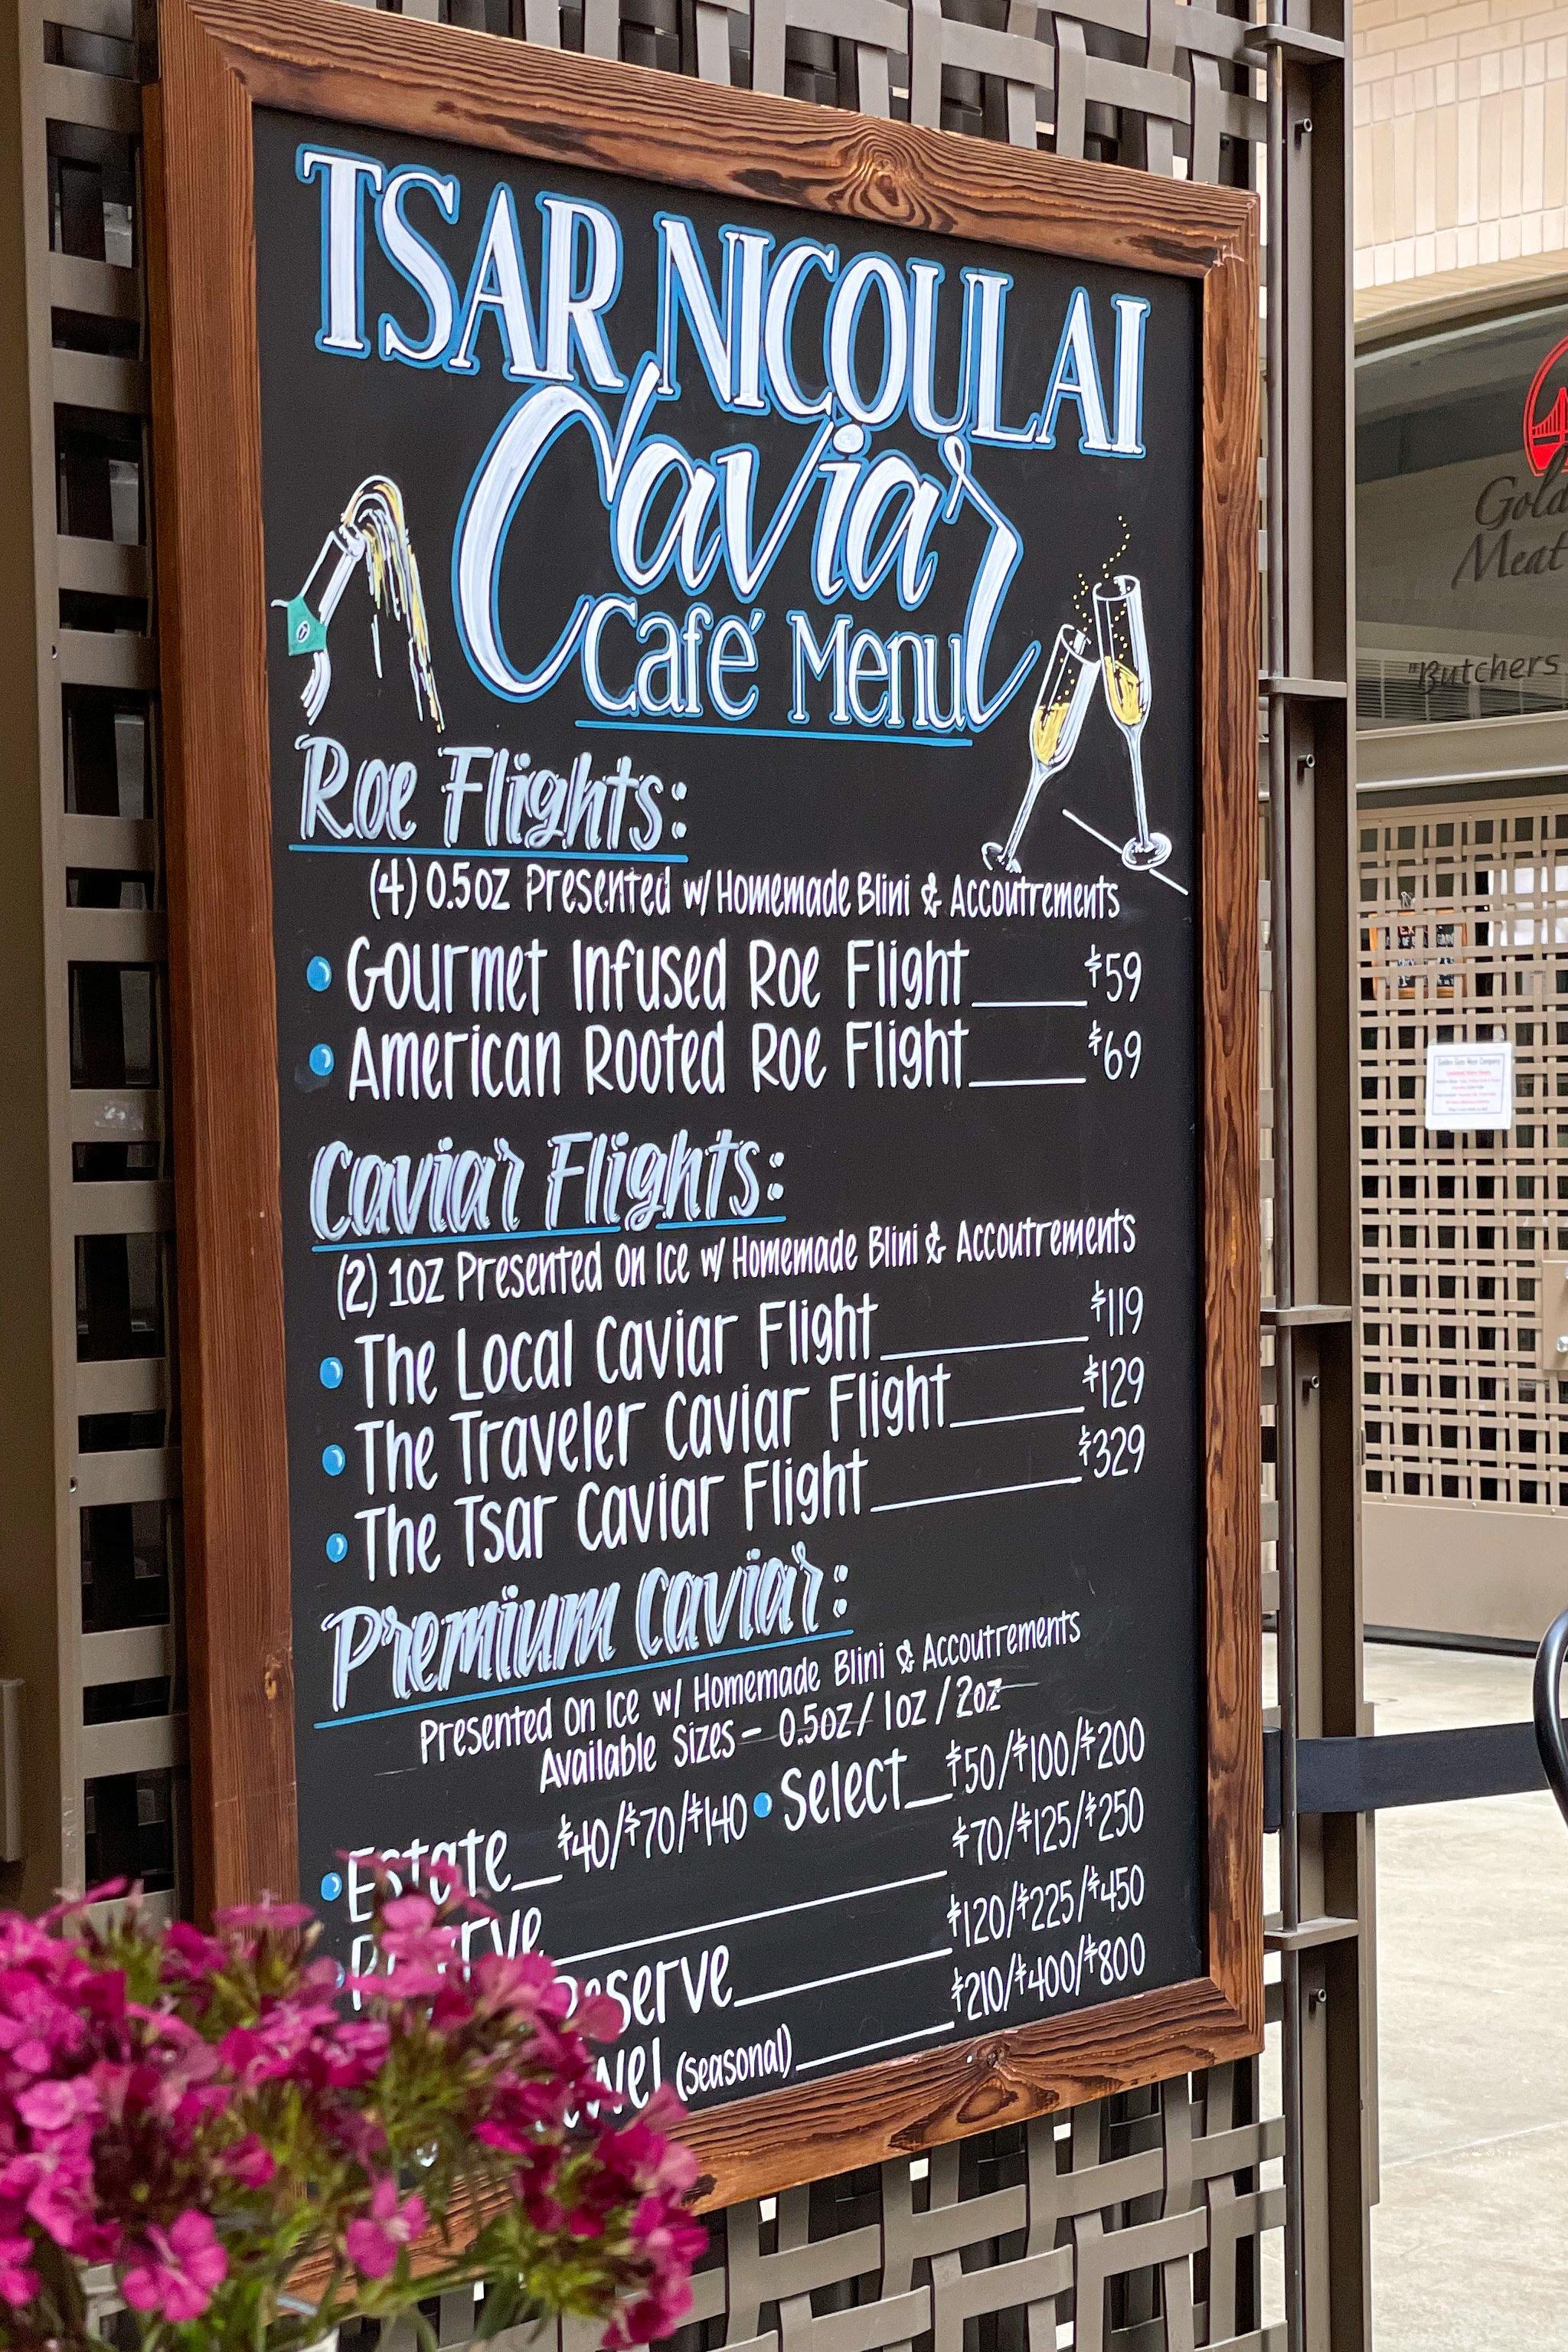 TSAR NICOULAI
Caviar
Café Menu
Roe Flights:
(4) 0.5oz Presented w/ Homemade Blini & Accoutrements
Gourmet Infused Roe Flight $59
American Rooted Roe Flight $69
Caviar Flights:
(2) 1oz Presented On Ice w/ Homemade Blini & Accoutrements
The Local Caviar Flight $119
The Traveler Caviar Flight $129
The Tsar Caviar Flight $329
Premium Caviar:
Presented On Ice w/ Homemade Blini & Accoutrements
Available Sizes - 0.5oz / 1oz / 2oz
Estate $40/$70/$140 Select $50/$100/$200
$70/$125/$250
Reserve $120/$225/$450
(seasonal) $210/$400/$800
Gold
Meat
"Butchers